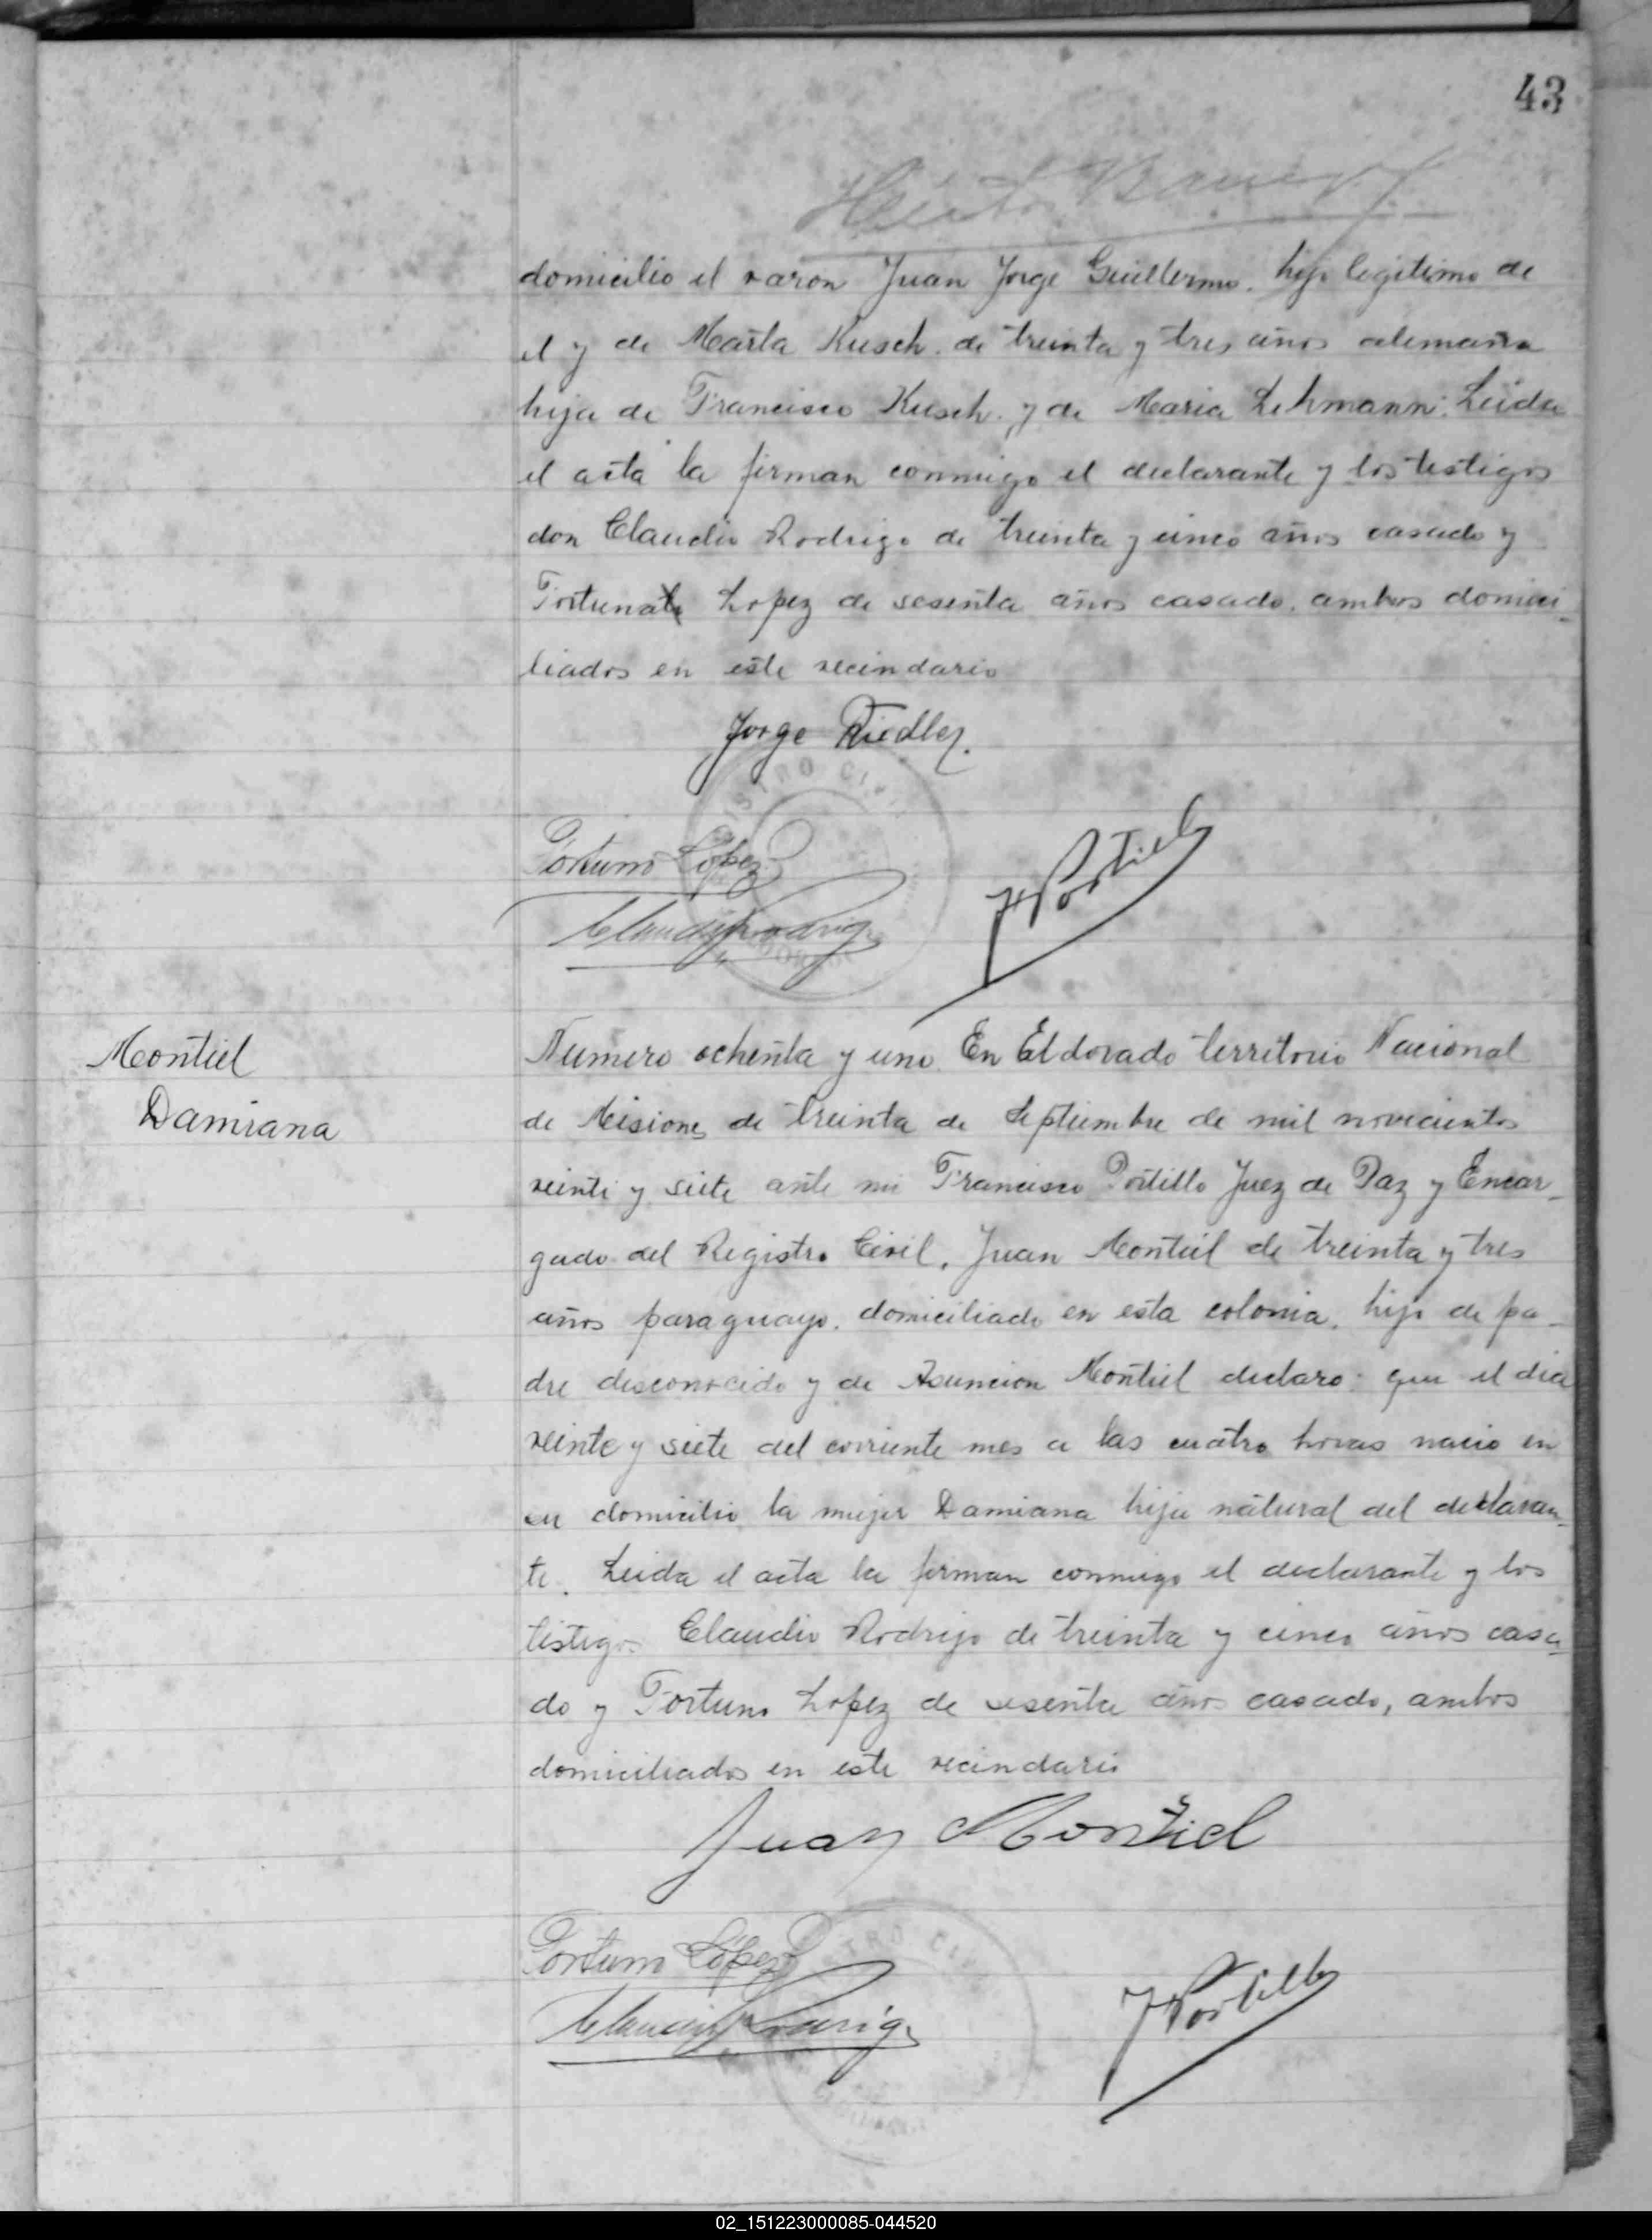 43
domicilio el varon Juan Jorge Guillermo. hijo legitimo de
el y de Marta Kusch. de treinta y tres años alemana
hija de Francisco Kusch. y de Maria Lehmann. Leida
el acta la firman conmigo el declarante y los testigos
don Claudio Rodrigo de treinta y cinco años casado y
Fortunato Lopez de sesenta años casado. ambos domici-
liados en este vecindario
Jorge Riedler.
Fortuno López
Claudio Rodrigo
F Portillo
Montiel
Damiana
Numero ochenta y uno. En Eldorado territorio Nacional
de Misiones de treinta de Septiembre de mil novecientos
veinte y siete ante mi Francisco Portillo Juez de Paz y Encar-
gado del Registro Civil. Juan Montiel de treinta y tres
años paraguayo. domiciliado en esta colonia. hijo de pa-
dre desconocido y de Asuncion Montiel declaro: que el dia
veinte y siete del corriente mes a las cuatro horas nacio en
su domicilio la mujer Damiana hija natural del declaran-
te. Leida el acta la firman conmigo el declarante y los
testigos Claudio Rodrigo de treinta y cinco años casa-
do y Fortuno Lopez de sesenta años casado, ambos
domiciliados en este vecindario
Juan Montiel
Fortuno López
Claudio Rodrigo
F Portillo
02_151223000085-044520